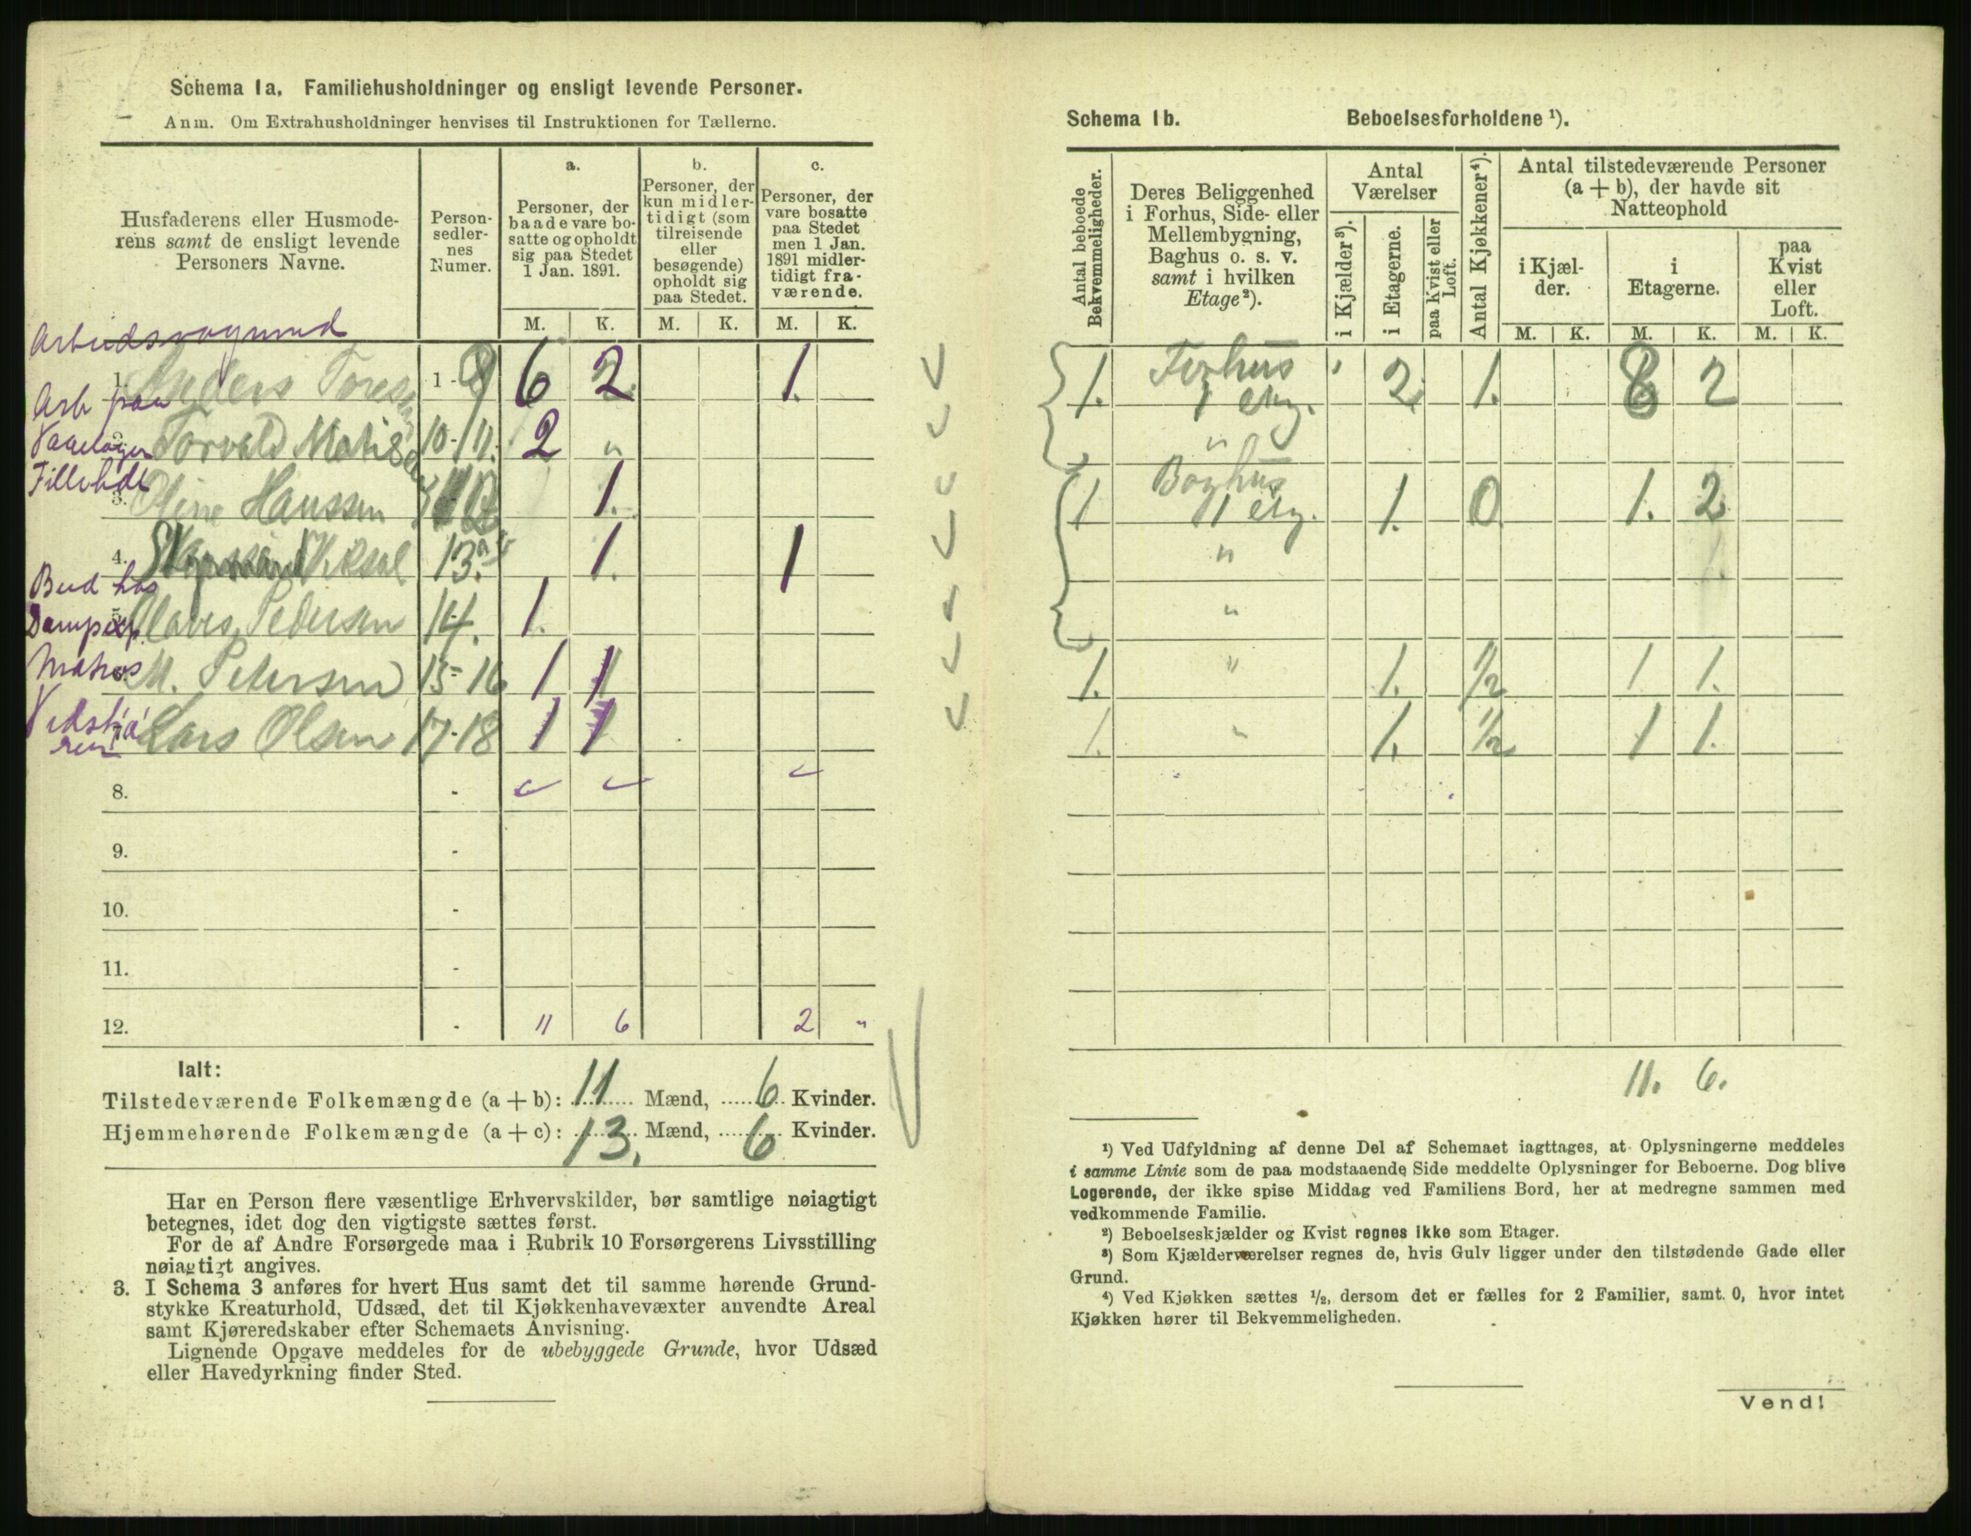 Schema 1a. Familiehusholdninger og ensligt levende Personer.
Anm. Om Extrahusholdninger henvises til Instruktionen for Tællerne.
Husfaderens eller Husmoderens samt de ensligt levende Personers Navne.
Personsedlernes Numer.
a. Personer, der baade vare bosatte og opholdt sig paa Stedet 1 Jan. 1891.
b. Personer, der kun midlertidigt (som tilreisende eller besøgende) opholdt sig paa Stedet.
c. Personer, der vare bosatte paa Stedet men 1 Jan. 1891 midlertidigt fraværende.
M. K. M. K. M. K.
1. Anders 1-9 6 2 1.
Arb paa
2. Torvald 10-11. 2 "
3. Oline Hanssen 12 1.
4. 13. 1. 1
Bud hos
5. Olaves Pedersen 14. 1.
Matros
6. M. Petersen 15-16 1 1
7. Lars Olsen 17-18 1 1
8. -
9. -
10. -
11. -
12. - 11 6 2 "
Ialt:
Tilstedeværende Folkemængde (a + b): 11 Mænd, 6 Kvinder.
Hjemmehørende Folkemængde (a + c): 13. Mænd, 6 Kvinder.
Har en Person flere væsentlige Erhvervskilder, bør samtlige nøiagtigt
betegnes, idet dog den vigtigste sættes først.
For de af Andre Forsørgede maa i Rubrik 10 Forsørgerens Livsstilling
nøiagtigt angives.
3. I Schema 3 anføres for hvert Hus samt det til samme hørende Grund-
stykke Kreaturhold, Udsæd, det til Kjøkkenhavevæxter anvendte Areal
samt Kjøreredskaber efter Schemaets Anvisning.
Lignende Opgave meddeles for de ubebyggede Grunde, hvor Udsæd
eller Havedyrkning finder Sted.
Schema 1b. Beboelsesforholdene ¹).
Antal beboede Bekvemmeligheder.
Deres Beliggenhed i Forhus, Side- eller Mellembygning, Baghus o. s. v. samt i hvilken Etage²).
Antal Værelser
i Kjælder³).
i Etagerne.
paa Kvist eller Loft.
Antal Kjøkkener⁴).
Antal tilstedeværende Personer (a + b), der havde sit Natteophold
i Kjælder.
i Etagerne.
paa Kvist eller Loft.
M. K. M. K. M. K.
1. Forhus 1 etg. 2 1. 8 2
"
1 Baghus 1 etg. 1. 0 1. 2
"
"
1. " 1. ½ 1 1.
1. " 1. ½ 1 1.
11. 6.
¹) Ved Udfyldning af denne Del af Schemaet iagttages, at Oplysningerne meddeles
i samme Linie som de paa modstaaende Side meddelte Oplysninger for Beboerne. Dog blive
Logerende, der ikke spise Middag ved Familiens Bord, her at medregne sammen med
vedkommende Familie.
²) Beboelseskjælder og Kvist regnes ikke som Etager.
³) Som Kjælderværelser regnes de, hvis Gulv ligger under den tilstødende Gade eller
Grund.
⁴) Ved Kjøkken sættes ½, dersom det er fælles for 2 Familier, samt 0, hvor intet
Kjøkken hører til Bekvemmeligheden.
Vend!